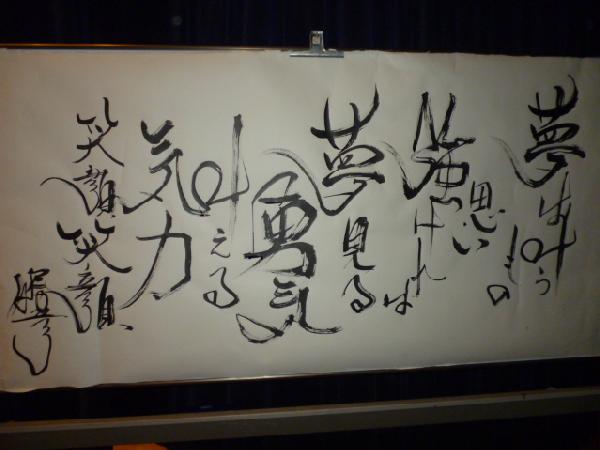 夢は叶うもの
思い
強ければ
夢見る
勇気
叶える
気力
笑顔、笑顔、